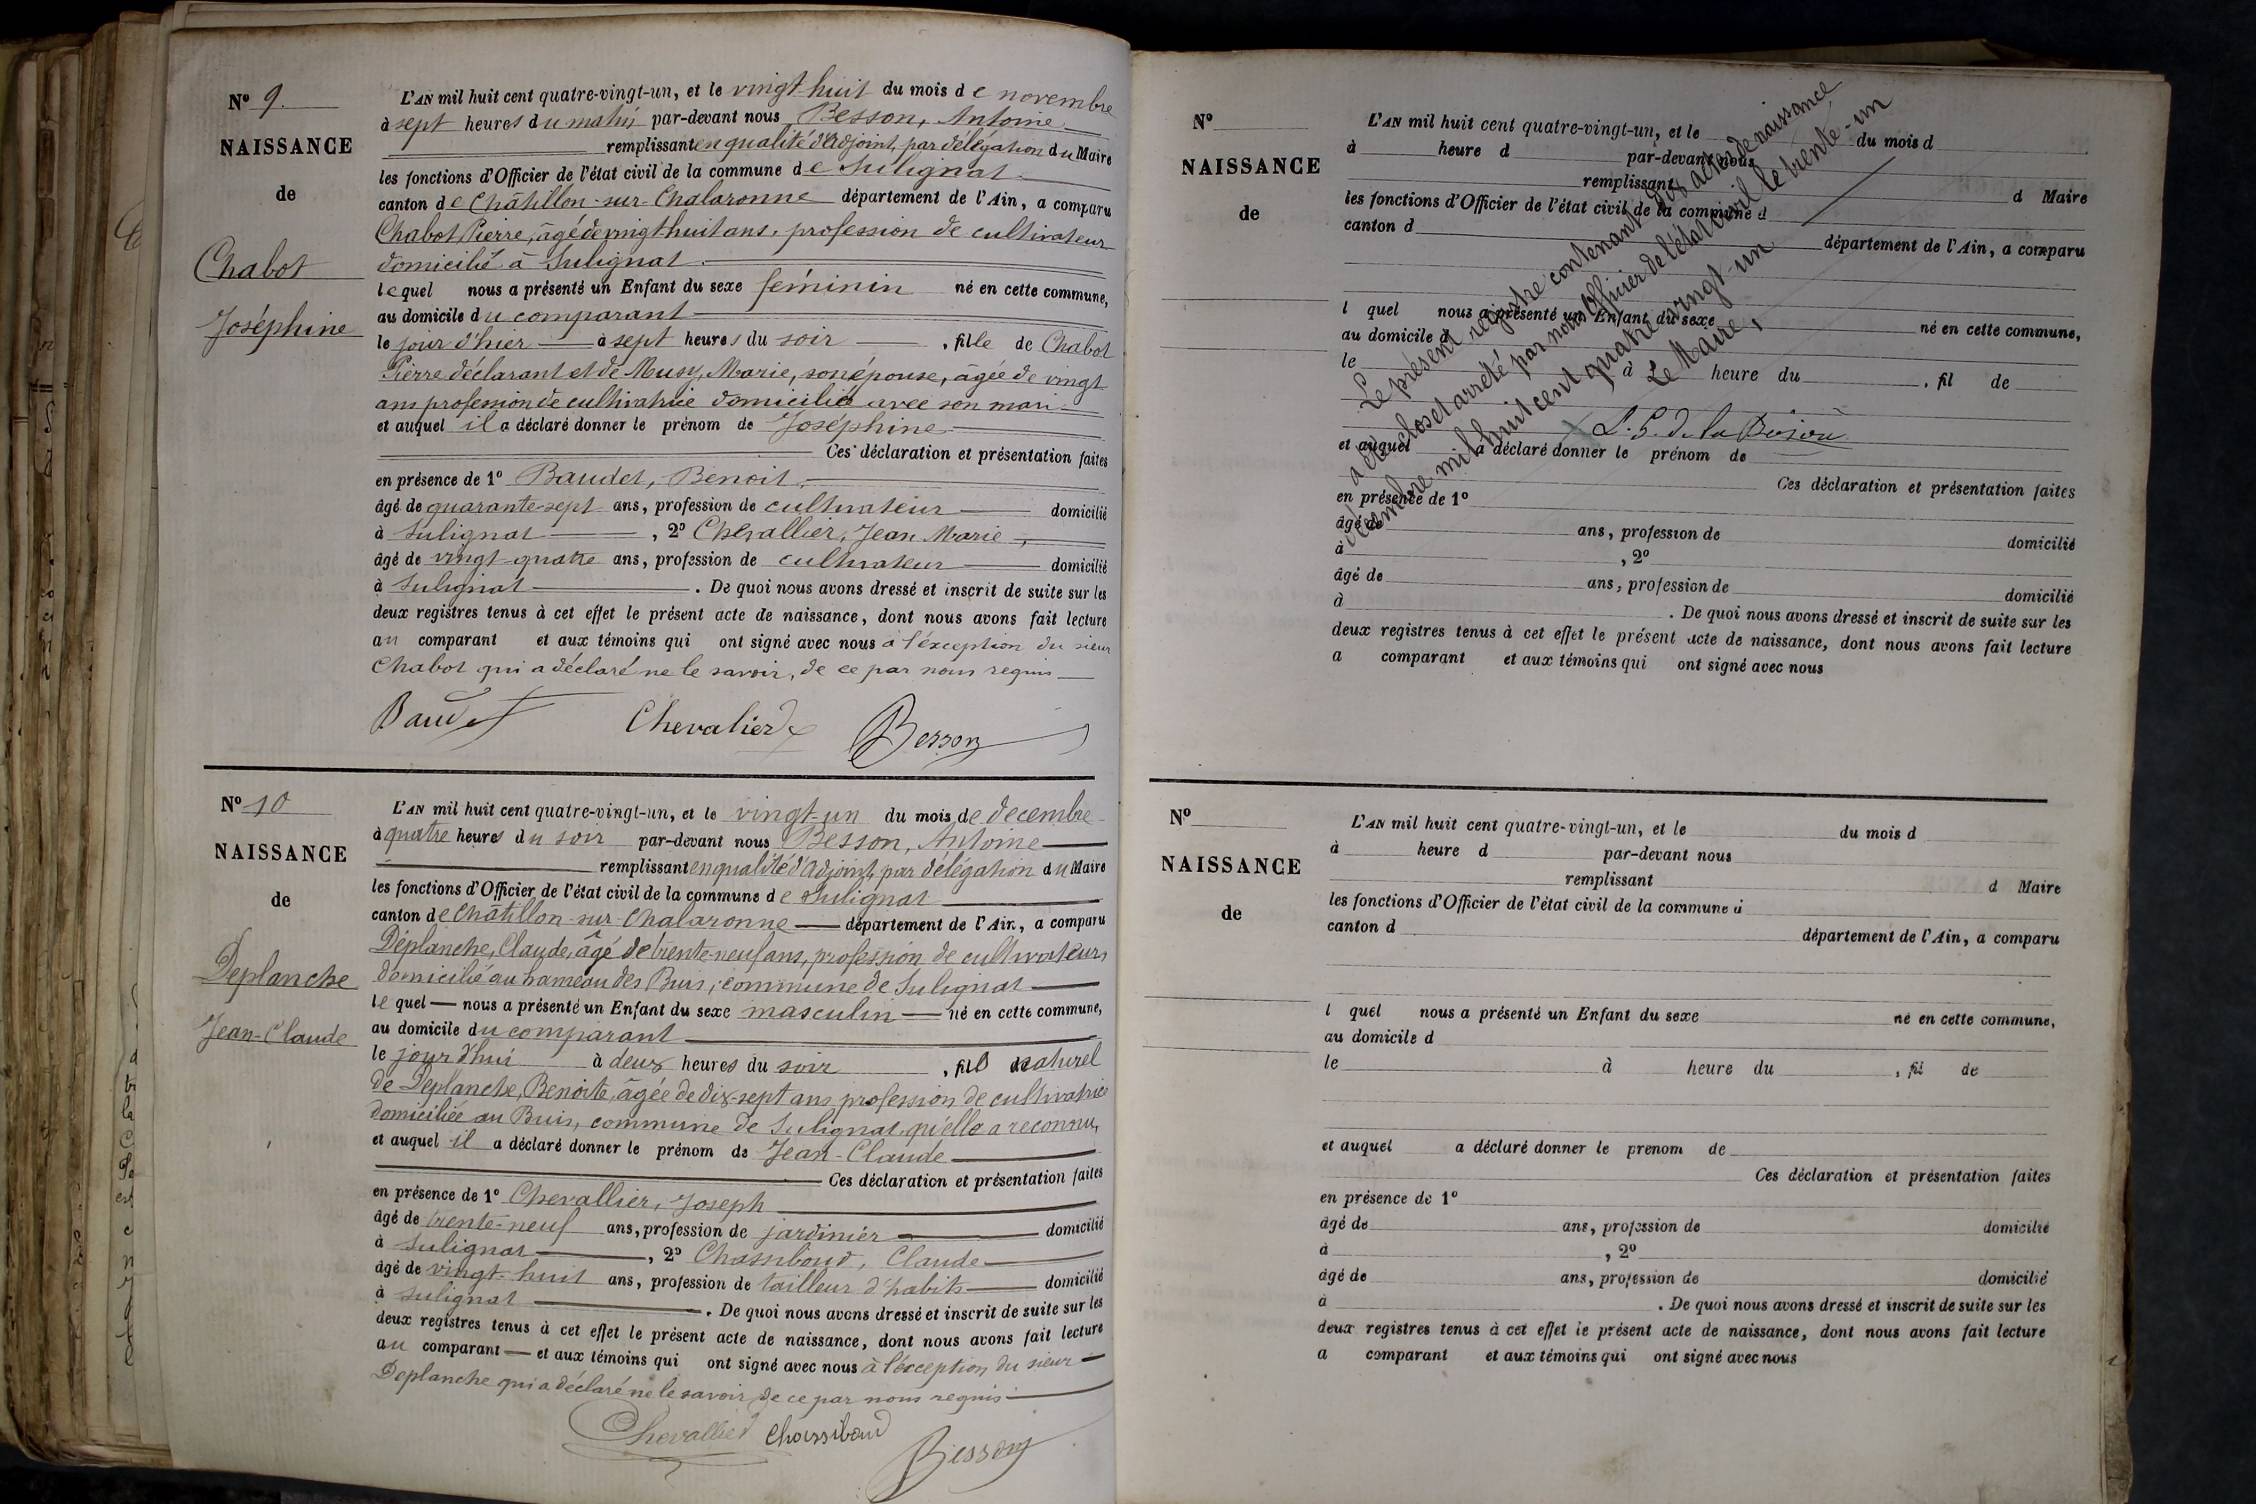 N° 9.
NAISSANCE
de
Chabot
Joséphine
L'AN mil huit cent quatre-vingt-un, et le vingt-huit du mois de novembre
à sept heures du matin par-devant nous Besson, Antoine
remplissant en qualité d'Adjoint, par délégation du Maire
les fonctions d'Officier de l'état civil de la commune de Sulignat
canton de Châtillon-sur-Chalaronne département de l'Ain, a comparu
Chabot, Pierre, âgé de vingt huit ans, profession de cultivateur
domicilié à Sulignat
lequel nous a présenté un Enfant du sexe féminin né en cette commune,
au domicile du comparant
le jour d'hier à sept heures du soir , fille de Chabot
Pierre déclarant et de Musy, Marie, son épouse, âgée de vingt
ans profession de cultivatrice domiciliée avec son mari
et auquel il a déclaré donner le prénom de Joséphine
Ces déclaration et présentation faites
en présence de 1° Baudet, Benoit,
âgé de quarante-sept ans, profession de cultivateur domicilié
à Sulignat , 2° Chevallier, Jean Marie,
âgé de vingt-quatre ans, profession de cultivateur domicilié
à Sulignat . De quoi nous avons dressé et inscrit de suite sur les
deux registres tenus à cet effet le présent acte de naissance, dont nous avons fait lecture
au comparant et aux témoins qui ont signé avec nous à l'éxception du sieur
Chabot qui a déclaré ne le savoir, de ce par nous requis
Baudet Chevalier Besson
N° 10
NAISSANCE
de
Deplanche
Jean-Claude
L'AN mil huit cent quatre-vingt-un, et le vingt-un du mois de decembre
à quatre heures du soir par-devant nous Besson, Antoine
remplissant en qualité d'Adjoint, par délégation du Maire
les fonctions d'Officier de l'état civil de la commune de Sulignat
canton de Châtillon-sur-Chalaronne département de l'Ain, a comparu
Déplanche, Claude, âgé de trente-neuf ans, profession de cultivateur,
domicilié au hameau des Buis, commune de Sulignat
lequel nous a présenté un Enfant du sexe masculin né en cette commune,
au domicile du comparant
le jour d'hui à deux heures du soir , fils naturel
de Deplanche, Benoite, âgée de dix-sept ans profession de cultivatrice
domiciliée au Buis, commune de Sulignat, qu'elle a reconnu,
et auquel il a déclaré donner le prénom de Jean-Claude
Ces déclaration et présentation faites
en présence de 1° Chevallier, Joseph
âgé de trente-neuf ans, profession de jardinier domicilié
à Sulignat , 2° Chassiboud, Claude
âgé de vingt-huit ans, profession de tailleur d'habits domicilié
à Sulignat . De quoi nous avons dressé et inscrit de suite sur les
deux registres tenus à cet effet le présent acte de naissance, dont nous avons fait lecture
au comparant et aux témoins qui ont signé avec nous à l'éxception du sieur
Deplanche qui a déclaré ne le savoir de ce par nous requis
Chevallier Chassiboud Besson
N°
NAISSANCE
de
L'AN mil huit cent quatre-vingt-un, et le du mois d
à heure d par-devant nous
remplissant d Maire
les fonctions d'Officier de l'état civil de la commune d
canton d département de l'Ain, a comparu
l quel nous a présenté un Enfant du sexe né en cette commune,
au domicile d
le à heure du , fil de
et auquel a déclaré donner le prénom de
Ces déclaration et présentation faites
en présence de 1°
âgé de ans, profession de domicilié
à , 2°
âgé de ans, profession de domicilié
à . De quoi nous avons dressé et inscrit de suite sur les
deux registres tenus à cet effet le présent acte de naissance, dont nous avons fait lecture
a comparant et aux témoins qui ont signé avec nous
Le présent registre contenant dix actes de naissance
a été clos et arrêté par nous Officier de l'état civil le trente-un
décembre mil huit cent quatre vingt-un
Le Maire,
N°
NAISSANCE
de
L'AN mil huit cent quatre-vingt-un, et le du mois d
à heure d par-devant nous
remplissant d Maire
les fonctions d'Officier de l'état civil de la commune d
canton d département de l'Ain, a comparu
l quel nous a présenté un Enfant du sexe né en cette commune,
au domicile d
le à heure du , fil de
et auquel a déclaré donner le prenom de
Ces déclaration et présentation faites
en présence de 1°
âgé de ans, profession de domicilié
à , 2°
âgé de ans, profession de domicilié
à . De quoi nous avons dressé et inscrit de suite sur les
deux registres tenus à cet effet le présent acte de naissance, dont nous avons fait lecture
a comparant et aux témoins qui ont signé avec nous